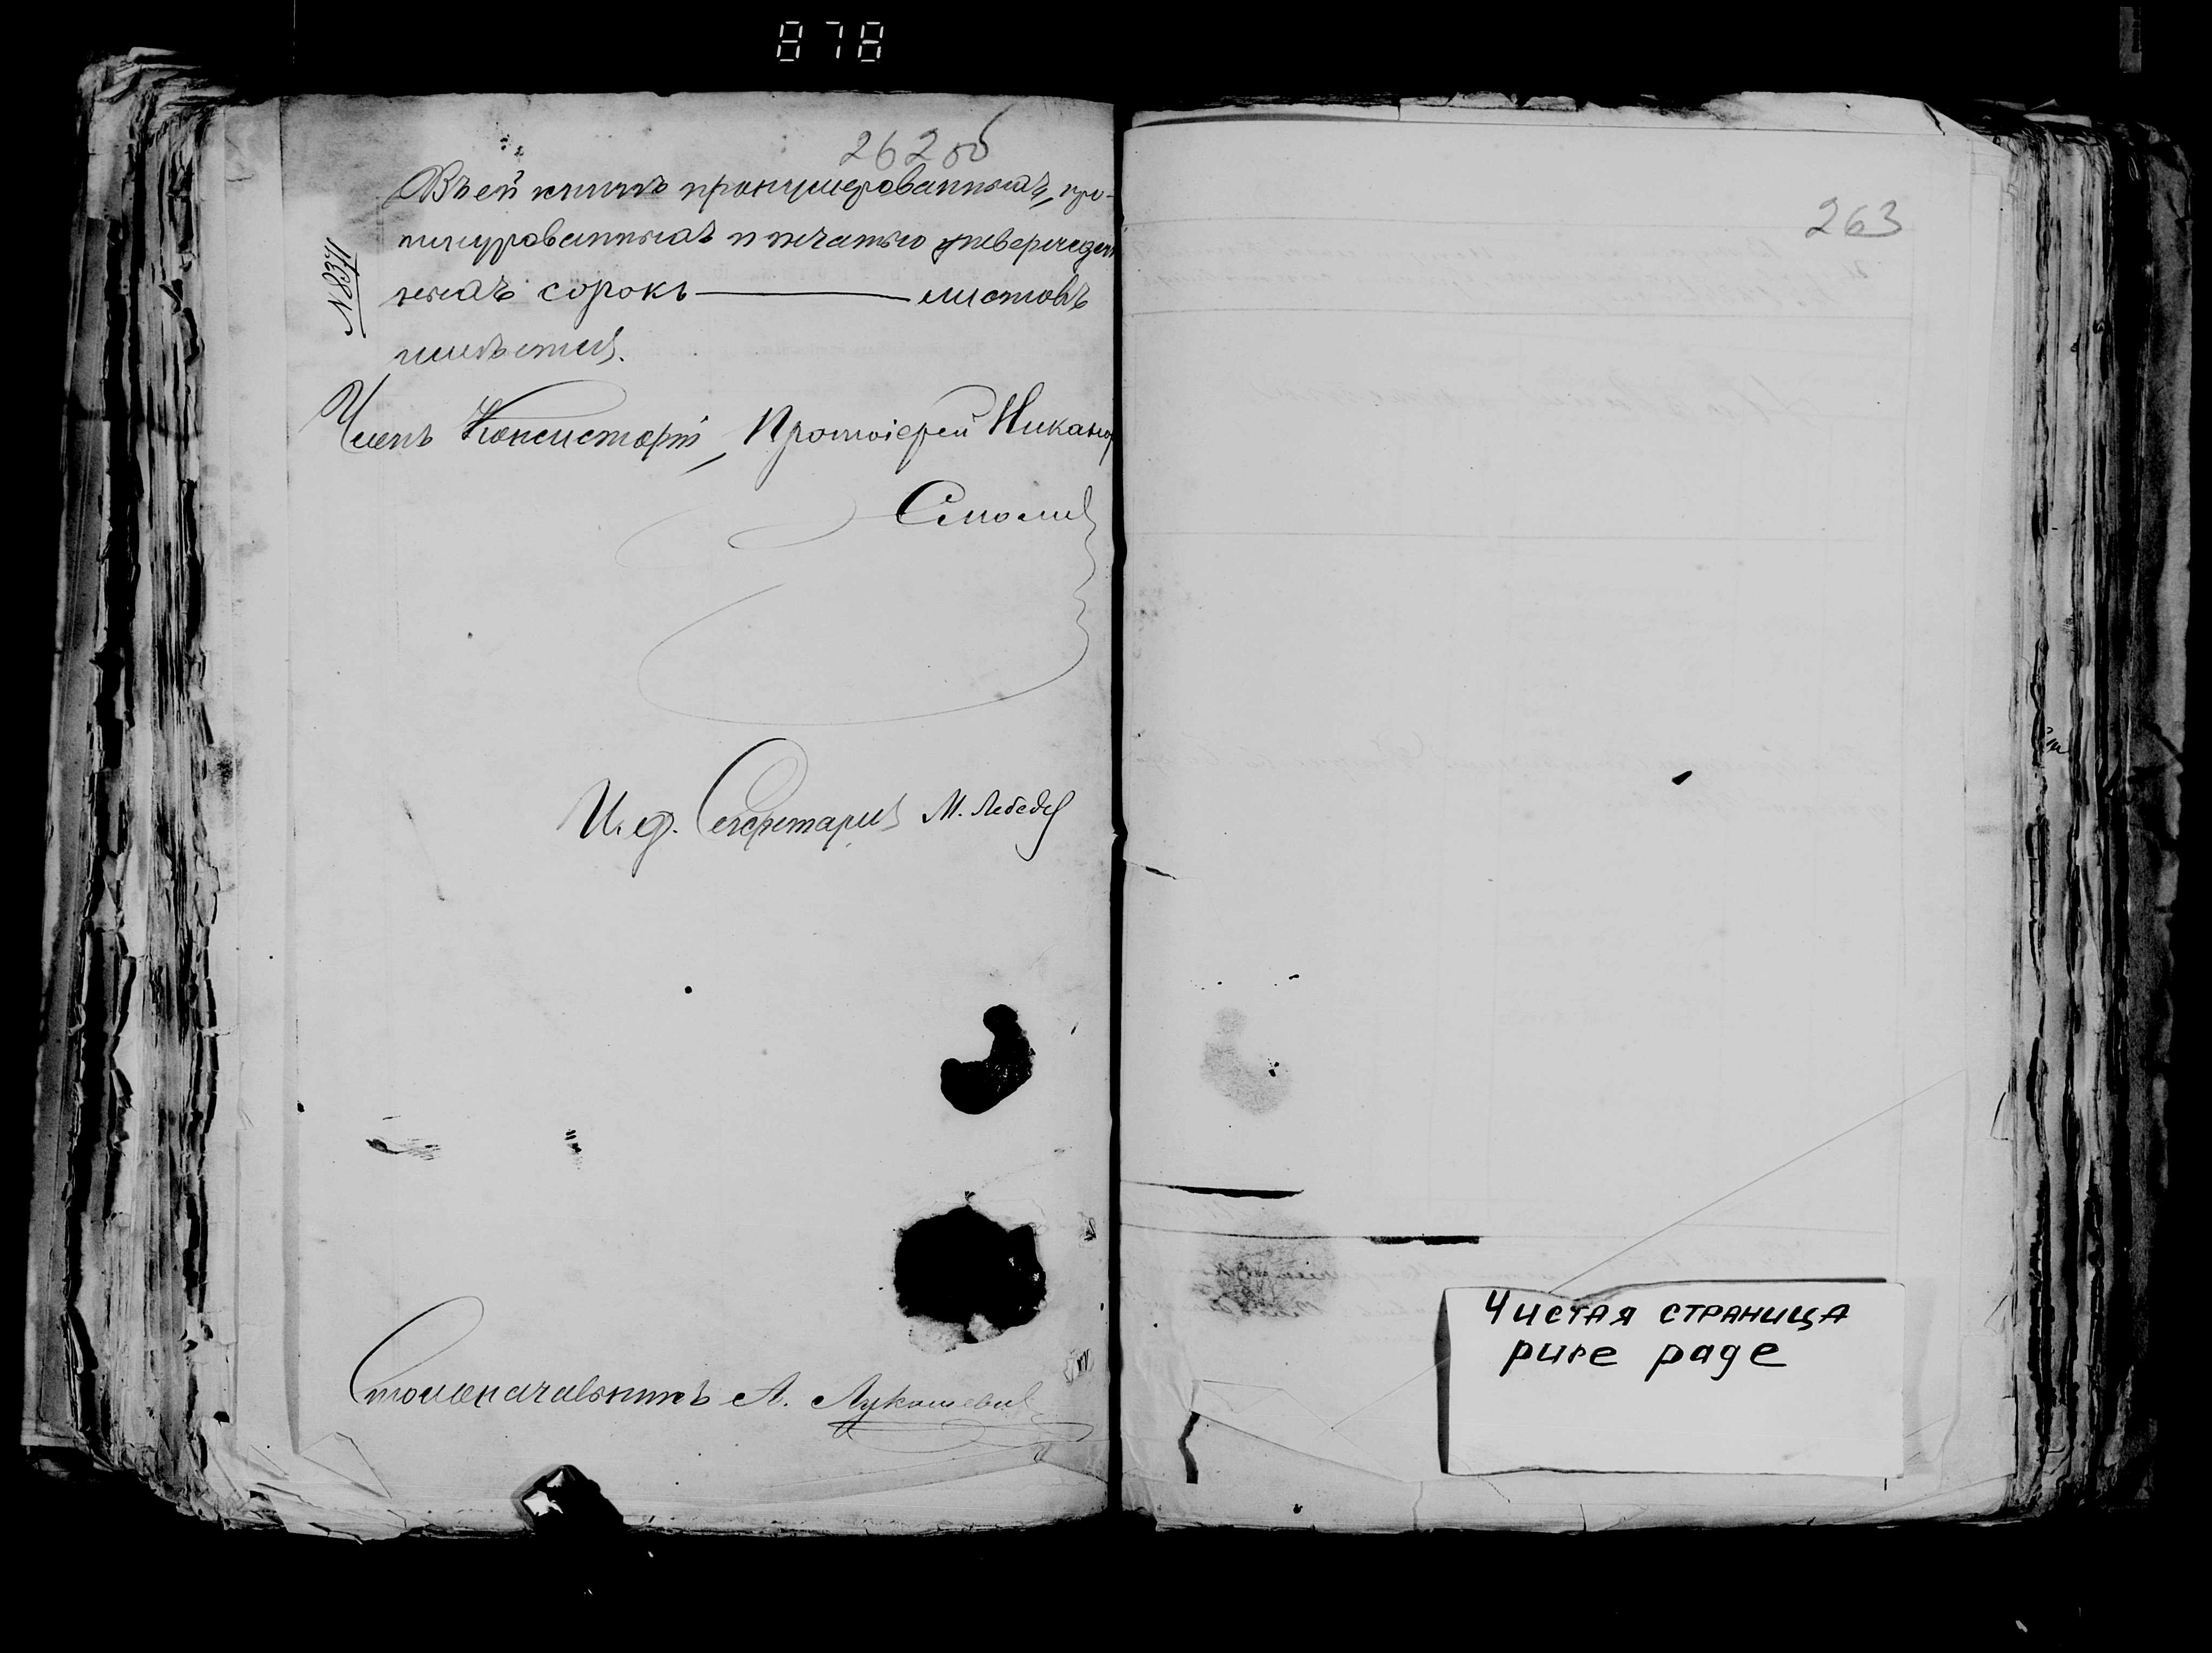 878
262 об
Въ сей книгѣ пронумерованныхъ, про-
шнурованныхъ и печатью утвержден
ныхъ сорокъ — листовъ
имѣется.
№ 8371
Членъ Консисторіи, Протоіерей Никанор
Смолич
И. д. Секретаря М. Лебедев
Столоначальникъ А. Лукашевич
263
Чистая страница
pure page